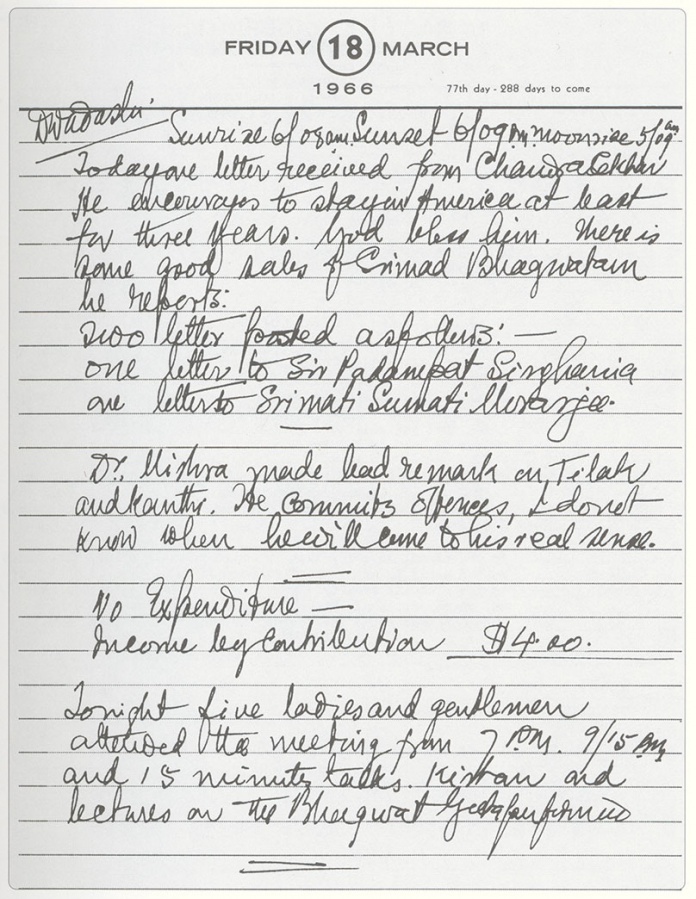 FRIDAY 18 MARCH
1966 77th day - 288 days to come
Dwadashi.
Sunrise 6/08am. Sunset 6/09 pm. moonrise 5/09 am
Today one letter received from Chandrasekhar
He encourages to stay in America at least
for three years. God bless him. There is
some good sales of Srimad Bhagwatam
he reports:
Two letter posted as follows: —
one letter to Sir Padampat Singhania
one letter to Srimati Sumati Morarjee.
Dr. Mishra made bad remark on Tilak
and Kanthi. He commits offences, I do not
know when he will come to his real sense.
No Expenditure —
Income by contribution $4.00.
Tonight five ladies and gentlemen
attended the meeting from 7 P.M. 9/15 P.M
and 15 minutes talks. Kirtan and
lectures on The Bhagwat Geeta performed